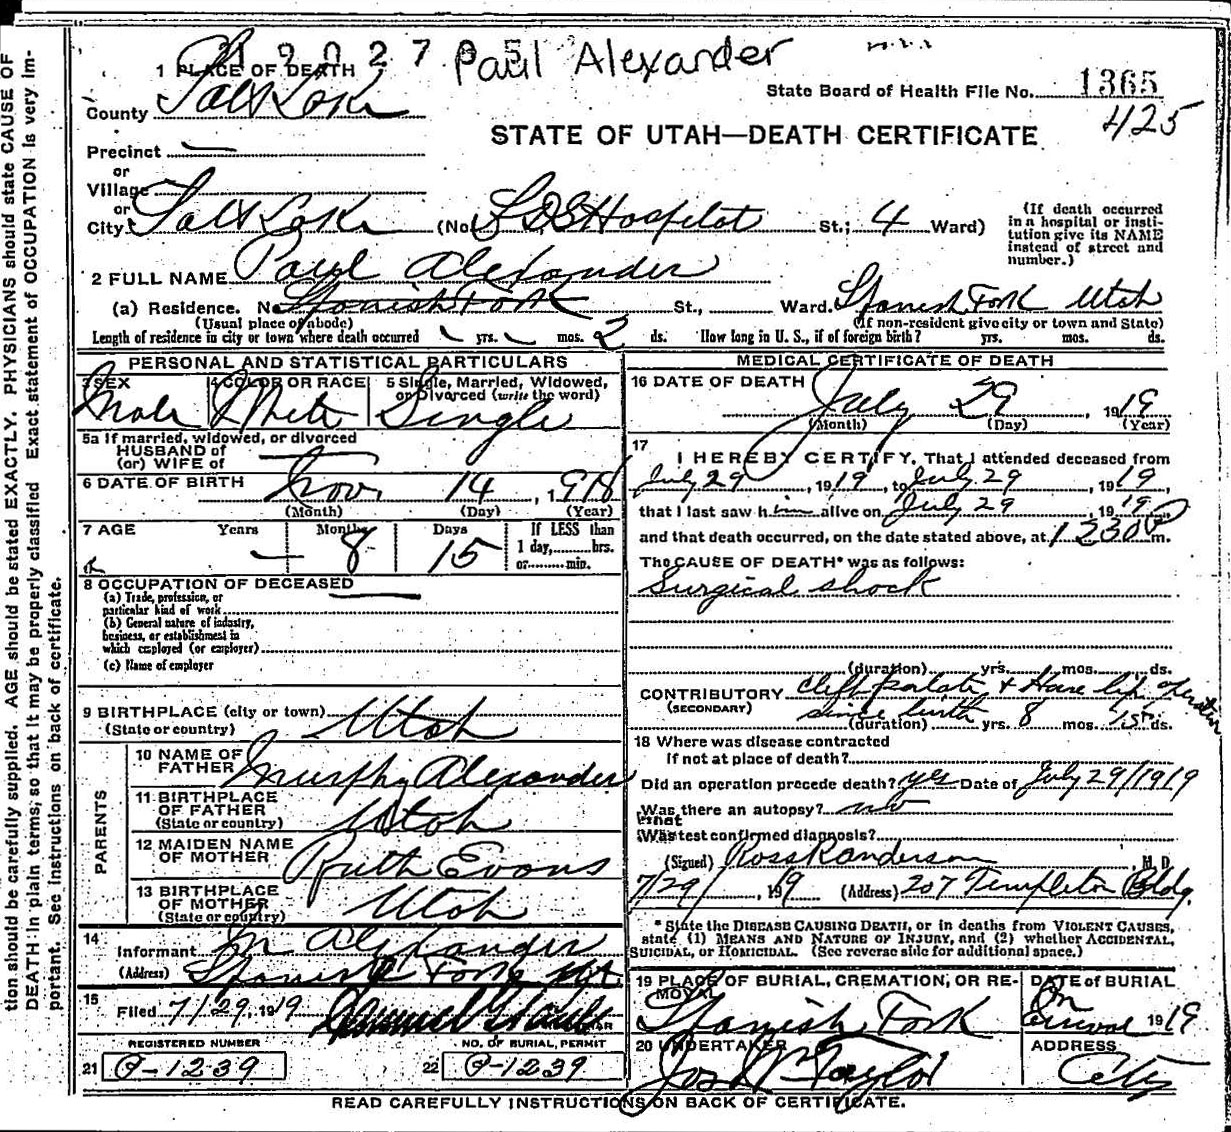 Paul Alexander
1 PLACE OF DEATH
State Board of Health File No. 1365
County Salt Lake
425
STATE OF UTAH—DEATH CERTIFICATE
Precinct —
or
Village
or
City Salt Lake (No. L D S Hospital St.; 4 Ward)
(If death occurred in a hospital or insti- tution give its NAME instead of street and number.)
2 FULL NAME Paul Alexander
(a) Residence. No. Spanish Fork St., Ward. Spanish Fork Utah
(Usual place of abode) (If non-resident give city or town and State)
Length of residence in city or town where death occurred yrs. mos. 2 ds. How long in U. S., if of foreign birth? yrs. mos. ds.
PERSONAL AND STATISTICAL PARTICULARS
3 SEX 4 COLOR OR RACE 5 Single, Married, Widowed, or Divorced (write the word)
Male White Single
5a If married, widowed, or divorced
HUSBAND of
(or) WIFE of
6 DATE OF BIRTH Nov 14, 1918
(Month) (Day) (Year)
7 AGE Years Months Days If LESS than
— 8 15 1 day, hrs.
or min.
8 OCCUPATION OF DECEASED
(a) Trade, profession, or
particular kind of work
(b) General nature of industry,
business, or establishment in
which employed (or employer)
(c) Name of employer
9 BIRTHPLACE (city or town)
(State or country) Utah
PARENTS
10 NAME OF
FATHER Murphy Alexander
11 BIRTHPLACE
OF FATHER
(State or country) Utah
12 MAIDEN NAME
OF MOTHER Ruth Evans
13 BIRTHPLACE
OF MOTHER
(State or country) Utah
14
Informant M Alexander
(Address) Spanish Fork Ut.
15
Filed 7/29, 1919
REGISTERED NUMBER NO. OF BURIAL PERMIT
21 C-1239 22 C-1239
MEDICAL CERTIFICATE OF DEATH
16 DATE OF DEATH
July 29, 1919
(Month) (Day) (Year)
17
I HEREBY CERTIFY, That I attended deceased from
July 29, 1919, to July 29, 1919,
that I last saw him alive on July 29, 1919
and that death occurred, on the date stated above, at 1230 P m.
The CAUSE OF DEATH* was as follows:
Surgical shock
(duration) yrs. mos. ds.
CONTRIBUTORY Cleft palate & Hare lip operation
(SECONDARY) since birth
(duration) yrs. 8 mos. 15 ds.
18 Where was disease contracted
If not at place of death?
Did an operation precede death? yes Date of July 29/1919
Was there an autopsy? no
What
test confirmed diagnosis?
(Signed) Ross Anderson, M. D.
7/29, 1919 (Address) 207 Templeton Bldg.
* State the DISEASE CAUSING DEATH, or in deaths from VIOLENT CAUSES,
state (1) MEANS AND NATURE OF INJURY, and (2) whether ACCIDENTAL,
SUICIDAL, or HOMICIDAL. (See reverse side for additional space.)
19 PLACE OF BURIAL, CREMATION, OR RE-
MOVAL
Spanish Fork
DATE of BURIAL
1919
20 UNDERTAKER
Jos Wm Taylor
ADDRESS
City
READ CAREFULLY INSTRUCTIONS ON BACK OF CERTIFICATE.
tion should be carefully supplied. AGE should be stated EXACTLY. PHYSICIANS should state CAUSE OF
DEATH in plain terms, so that it may be properly classified Exact statement of OCCUPATION is very im-
portant. See instructions on back of certificate.